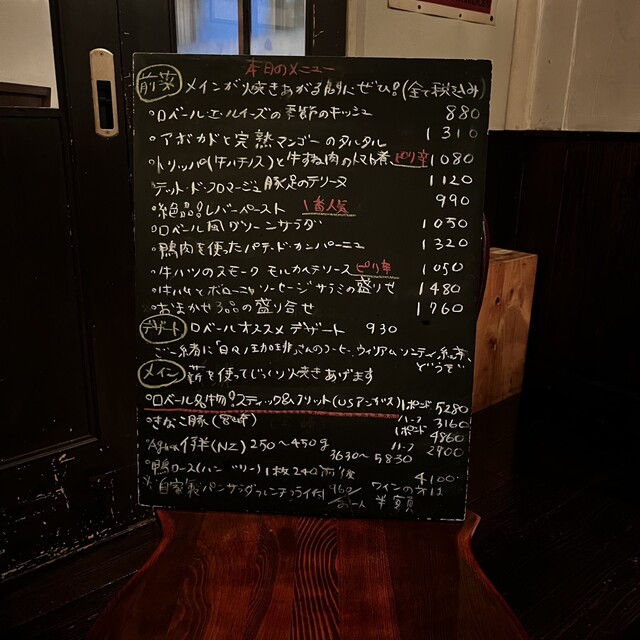 本日のメニュー
前菜 メインが焼きあがる前にぜひ!(全て税込み)
・ロベールエルイーズの季節のキッシュ 880
・アボカドと完熟マンゴーのタルタル 1310
・トリッパ(牛ハチノス)と牛すね肉のトマト煮 ピリ辛 1080
・テット・ド・フロマージュ 豚足のテリーヌ 1120
・絶品!レバーペースト 1番人気 990
・ロベール風グリーンサラダ 1050
・鴨肉を使ったパテ・ド・カンパーニュ 1320
・牛ハツのスモーク モルカベテソース ピリ辛 1050
・生ハムとボローニャソーセージサラミの盛り合せ 1480
・おまかせ3品の盛り合せ 1760
デザート ロベールオススメデザート 930
ご一緒に「日々ノ珈琲」さんのコーヒー、ウィリアムソンティー紅茶、どうぞ
メイン 薪を使ってじっくり焼きあげます
・ロベール名物!ステーキ&フリット(USアンガス) 1ポンド 5280
ハーフ 3160
・きなこ豚 1ポンド 4860
ハーフ 2900
仔羊(NZ) 250〜450g 3630〜5830
・鴨ロース(ハンガリー) 1枚240g前後 4100
※自家製パン サラダ フレンチフライ付 960/お一人 ワインの方は半額